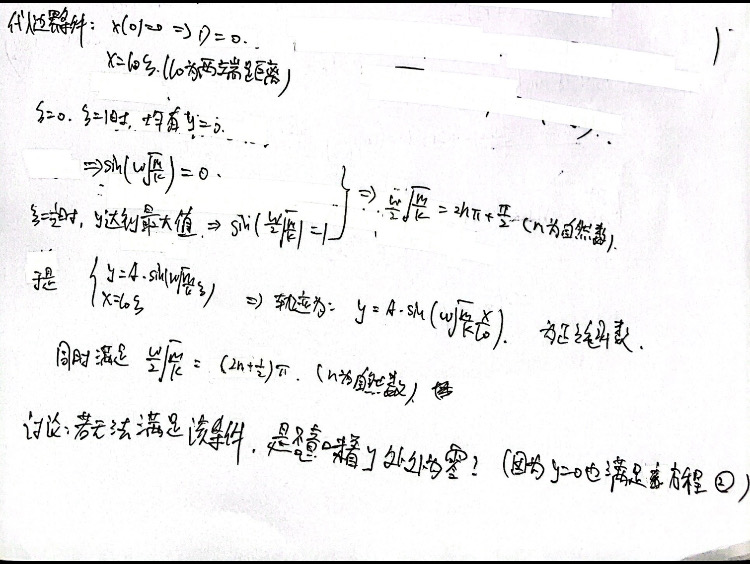 代入边界条件: x(0)=0 ⇒ D=0.
x=l₀ξ. (l₀为两端距离)
ξ=0. ξ=1时, 均有y=0.
⇒ sin(ω√(m/k)) = 0.
ξ=½时, y达到最大值 ⇒ sin(ω/2 √(m/k)) = 1 } ⇒ ω/2 √(m/k) = 2nπ + π/2 (n为自然数).
于是 { y=A·sin(ω√(m/k) ξ) x=l₀ξ ⇒ 轨迹为: y=A·sin(ω√(m/k) x/l₀). 为正弦函数.
同时满足 ω/2 √(m/k) = (2n+½)π. (n为自然数)
讨论: 若无法满足该条件, 是否意味着y处处为零? (因为y=0也满足 方程②)